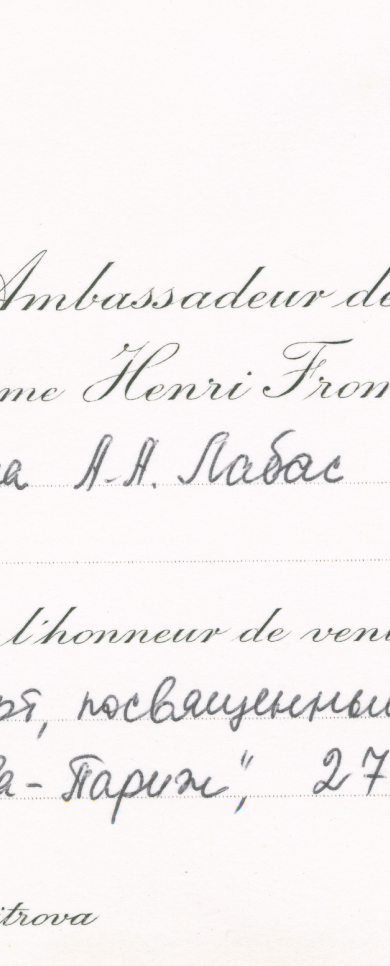 Ambassadeur de
me Henri From
а А.А. Лабас
l'honneur de veni
рт, посвященный
ва-Париж", 27
itrova